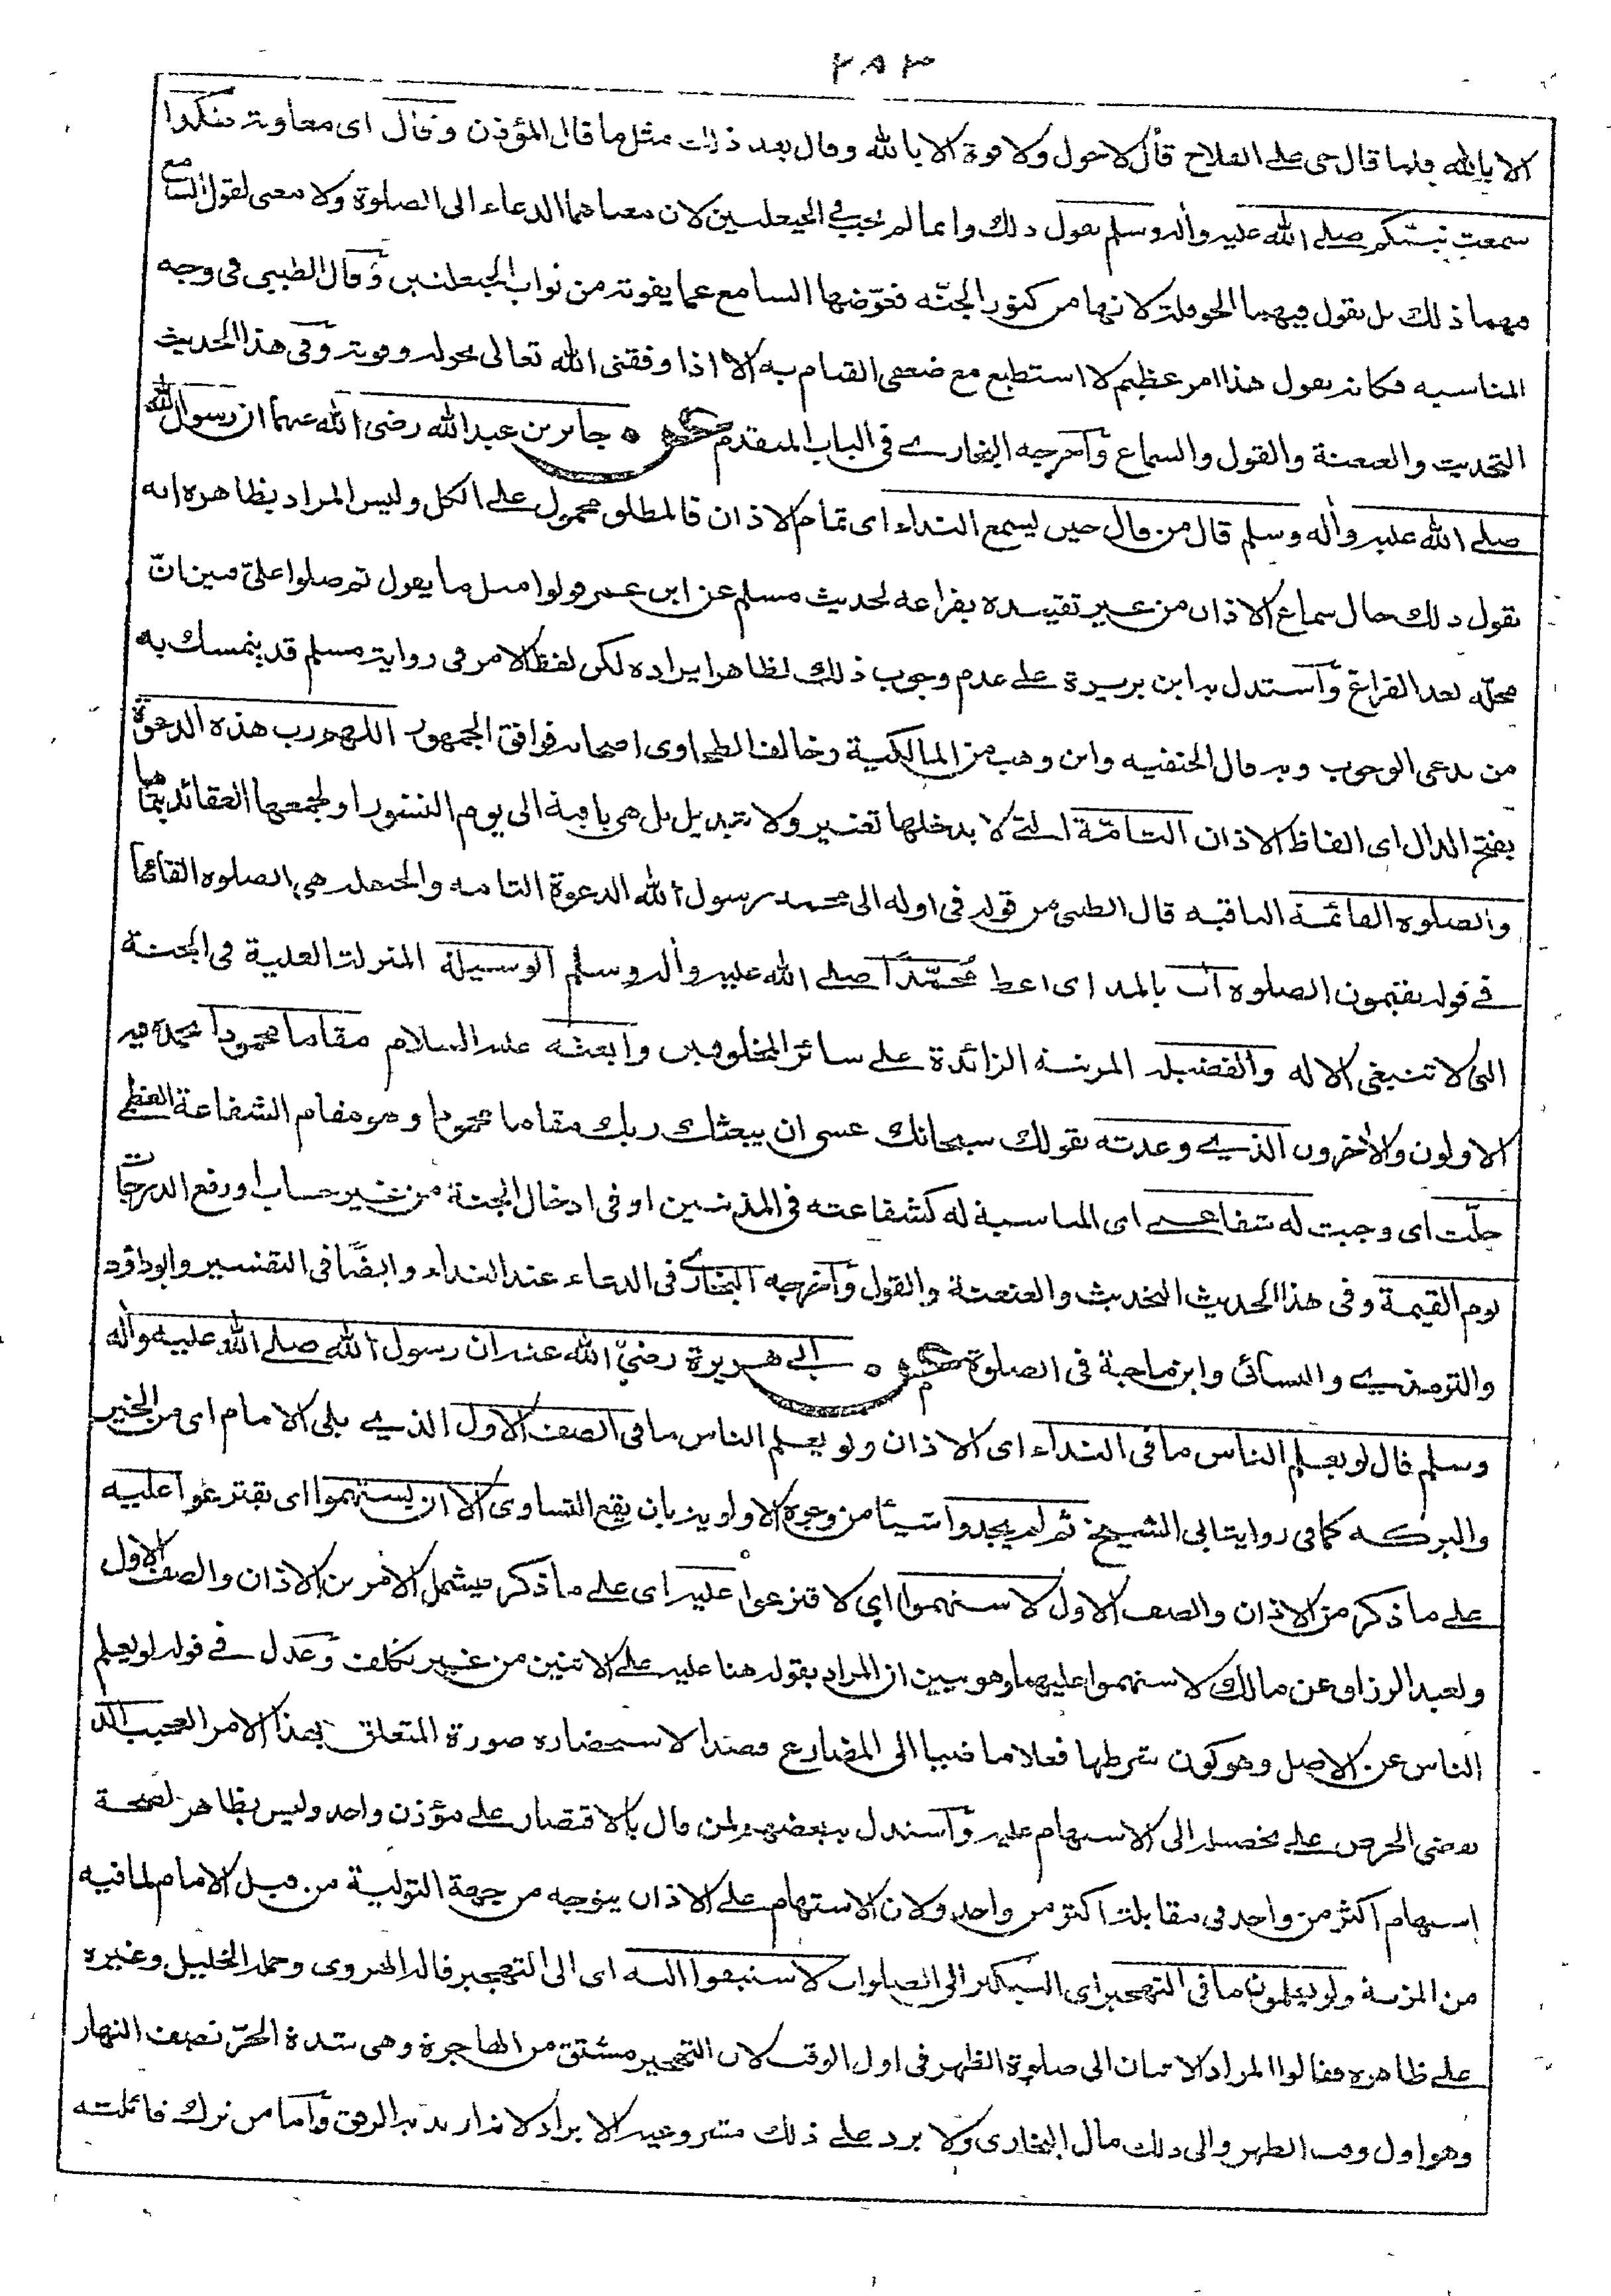 ٢٨٣
الا بالله فلما قال حى على الفلاح قال لا حول ولا قوة الا بالله وقال بعد ذلك مثل ما قال المؤذن وقال اى معاوية هكذا
سمعت نبيكم صلى الله عليه وأله وسلم يقول ذلك وانما لم يجب فى الحيعلتين لان معناهما الدعاء الى الصلوة ولا معنى لقول السامع
فيهما ذلك بل يقول فيهما الحوقلة لانها من كنوز الجنّه فعوّضها السامع عما يفوته من ثواب الحيعلتين وقال الطيبى فى وجه
المناسبه فكانه يقول هذا امر عظيم لا استطيع مع ضعفى القيام به الا اذا وفقنى الله تعالى بحوله وقوته وفى هذا الحديث
التحديث والعنعنة والقول والسماع وأخرجه البخارى فى الباب المتقدم جابر بن عبد الله رضى الله عنهما ان رسول الله
صلى الله عليه وأله وسلم قال من قال حين يسمع النداء اى تمام الاذان فالمطلق محمول على الكل وليس المراد بظاهره انه
يقول ذلك حال سماع الاذان من غير تقييده بفراغه لحديث مسلم عن ابن عمر قولوا مثل ما يقول ثم صلوا علىّ فبين انّ
محلّه بعد الفراغ وأستدل به ابن بريرة على عدم وجوب ذلك لظاهر ايراده لكن لفظ الامر فى رواية مسلم قد يتمسك به
من يدعى الوجوب وبه قال الحنفيه وابن وهب من المالكية وخالف الطحاوى اصحابه فوافق الجمهور اللهم رب هذه الدعوة
بفتح الدال اى الفاظ الاذان التامّة التى لا يدخلها تغيير ولا تبديل بل هى باقية الى يوم النشور او لجمعها العقائد بتمامها
والصلوة القائمة الباقيه قال الطيبى من قوله فى اوله الى محمد رسول الله الدعوة التامه والحيعله هى الصلوة القائمة
فى قوله يقيمون الصلوة أت بالمد اى اعط مُحمّداً صلى الله عليه وأله وسلم الوسيلة المنزلة العلية فى الجنة
التى لا تنبغى الا له والفضيله المرتبة الزائدة على سائر المخلوقين وابعثه عليه السلام مقاما محمودا يحمده فيه
الاولون والأخرون الذى وعدته بقولك سبحانك عسى ان يبعثك ربك مقاما محمودا وهو مقام الشفاعة العظمى
حلّت اى وجبت له شفاعتى اى المناسبة له كشفاعته فى المذنبين او فى ادخال الجنة من غير حساب او رفع الدرجات
يوم القيمة وفى هذا الحديث التحديث والعنعنة والقول وأخرجه البخارى فى الدعاء عند النداء وايضًا فى التفسير وابو داؤد
والترمذى والنسائى وابن ماجة فى الصلوة ابى هريرة رضىّ الله عنه ان رسول الله صلى الله عليه وأله
وسلم قال لو يعلم الناس ما فى النداء اى الاذان ولو يعلم الناس ما فى الصف الاول الذى يلى الامام اى من الخير
والبركه كما فى رواية ابى الشيخ ثم لم يجدوا شيئا من وجوه الاولوية بان يقع التساوى الا ان يستهموا اى يقترعوا عليه
على ما ذكر من الاذان والصف الاول لاستهموا اى لاقترعوا عليه اى على ما ذكر ميشمل الامرين الاذان والصف الاول
ولعبد الرزاق عن مالك لاستهموا عليهما وهو يبين ان المراد بقوله هنا عليه على الاثنين من غير تكلف وعدل فى قوله لو يعلم
الناس عن الاصل وهو كون شرطها فعلا ماضيا الى المضارع قصدا لاستحضاره صورة المتعلق بهذا الامر العجيب الذ
يفضى الحرص على تحصيله الى الاستهام عليه وأستدل به بعضهم لمن قال بالاقتصار على مؤذن واحد وليس بظاهر لصحة
استهام اكثر من واحد فى مقابلة اكثر من واحد ولان الاستهام على الاذان يتوجه من جهة التولية من قبل الامام لما فيه
من المزية ولو يعلمون ما فى التهجير اى التبكير الى الصلوات لاستبقوا اليه اى الى التهجير قاله الهروى وحمله الخليل وغيره
على ظاهره فقالوا المراد الاتيان الى صلوة الظهر فى اول الوقت لان التهجير مشتق من الهاجرة وهى شدة الحرّ نصف النهار
وهو اول وقت الظهر والى ذلك مال البخارى ولا يرد على ذلك مشروعية الابراد لانه اريد به الرفق وأما من ترك قائلته